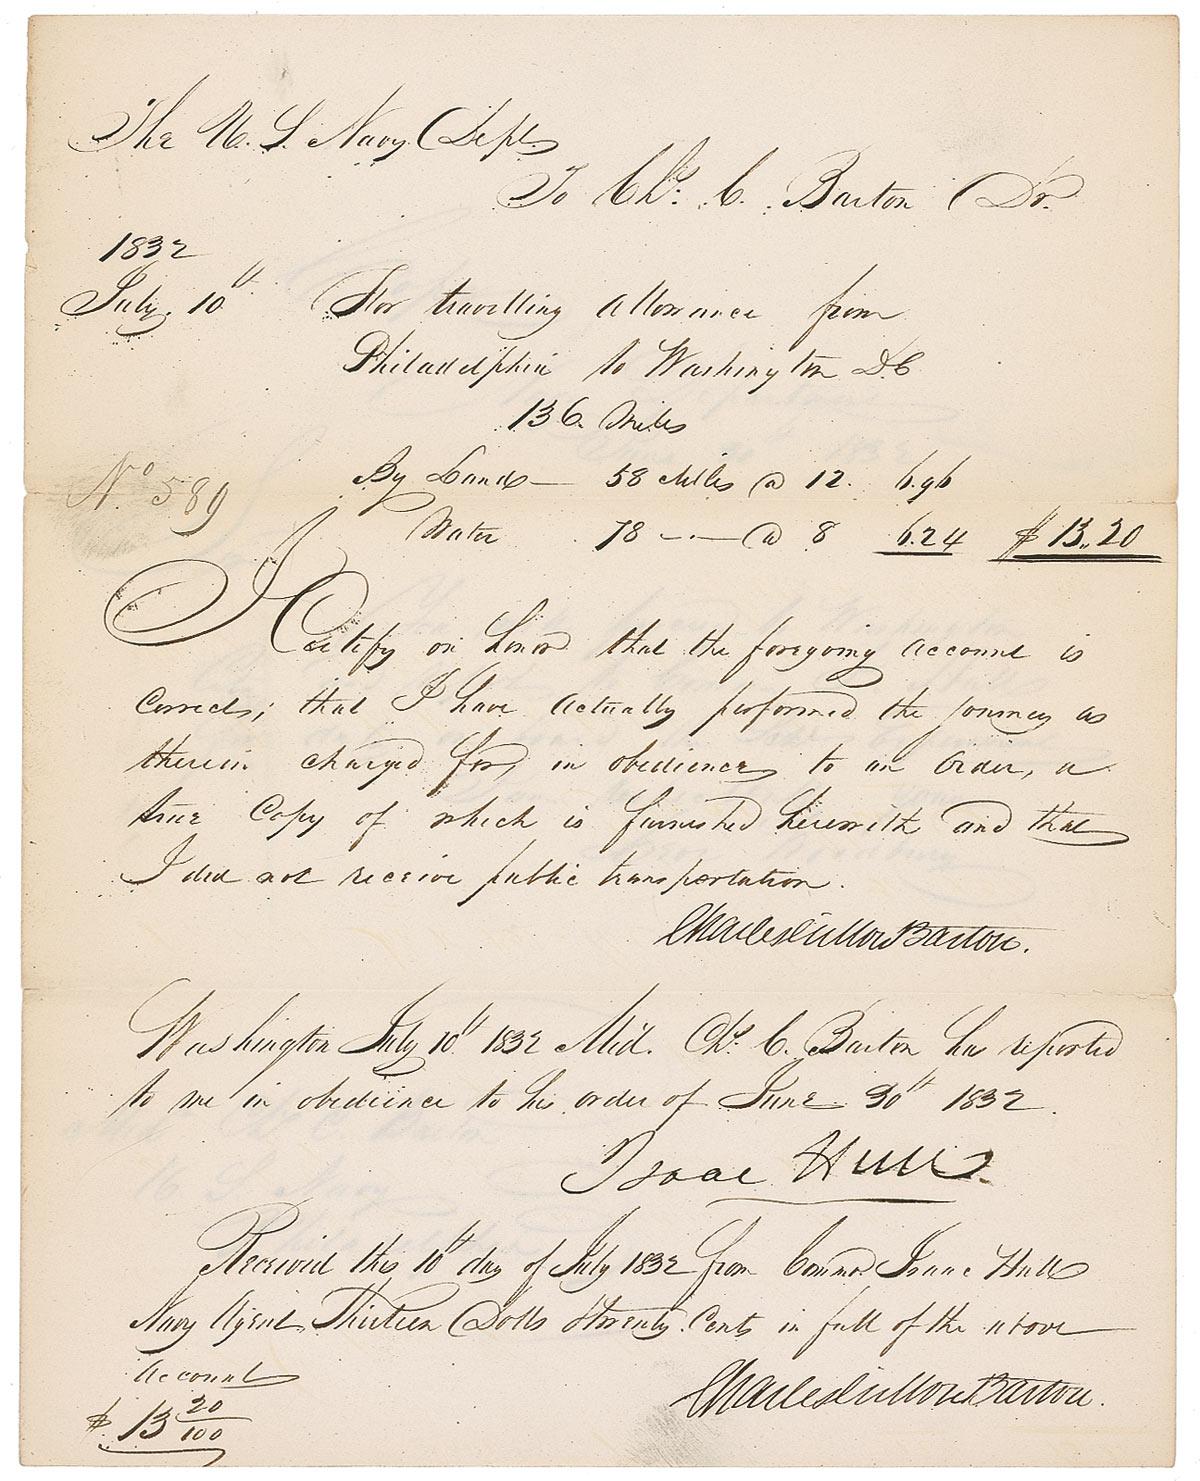 The U. S. Navy Dept.
To Chs. C. Barton Dr.
1832
July 10th For travelling allowance from
Philadelphia to Washington D.C
136 Miles
By Land — 58 Miles @ 12. 6.96
No 589
Water 78 -.- @ 8 6.24 $13..20
I Certify on honor that the foregoing account is
correct; that I have actually performed the journey as
therein charged for, in obedience to an order, a
true Copy of which is furnished herewith and that
I did not receive public transportation.
Charles Barton.
Washington July 10th 1832 Mid. Chs. C. Barton has reported
to me in obedience to his order of June 30th 1832.
Isaac Hull.
Received this 10th day of July 1832 from Commo. Isaac Hull
Navy Agent, Thirteen Dolls & twenty Cents in full of the above
account
$13 20/100
Charles Barton.